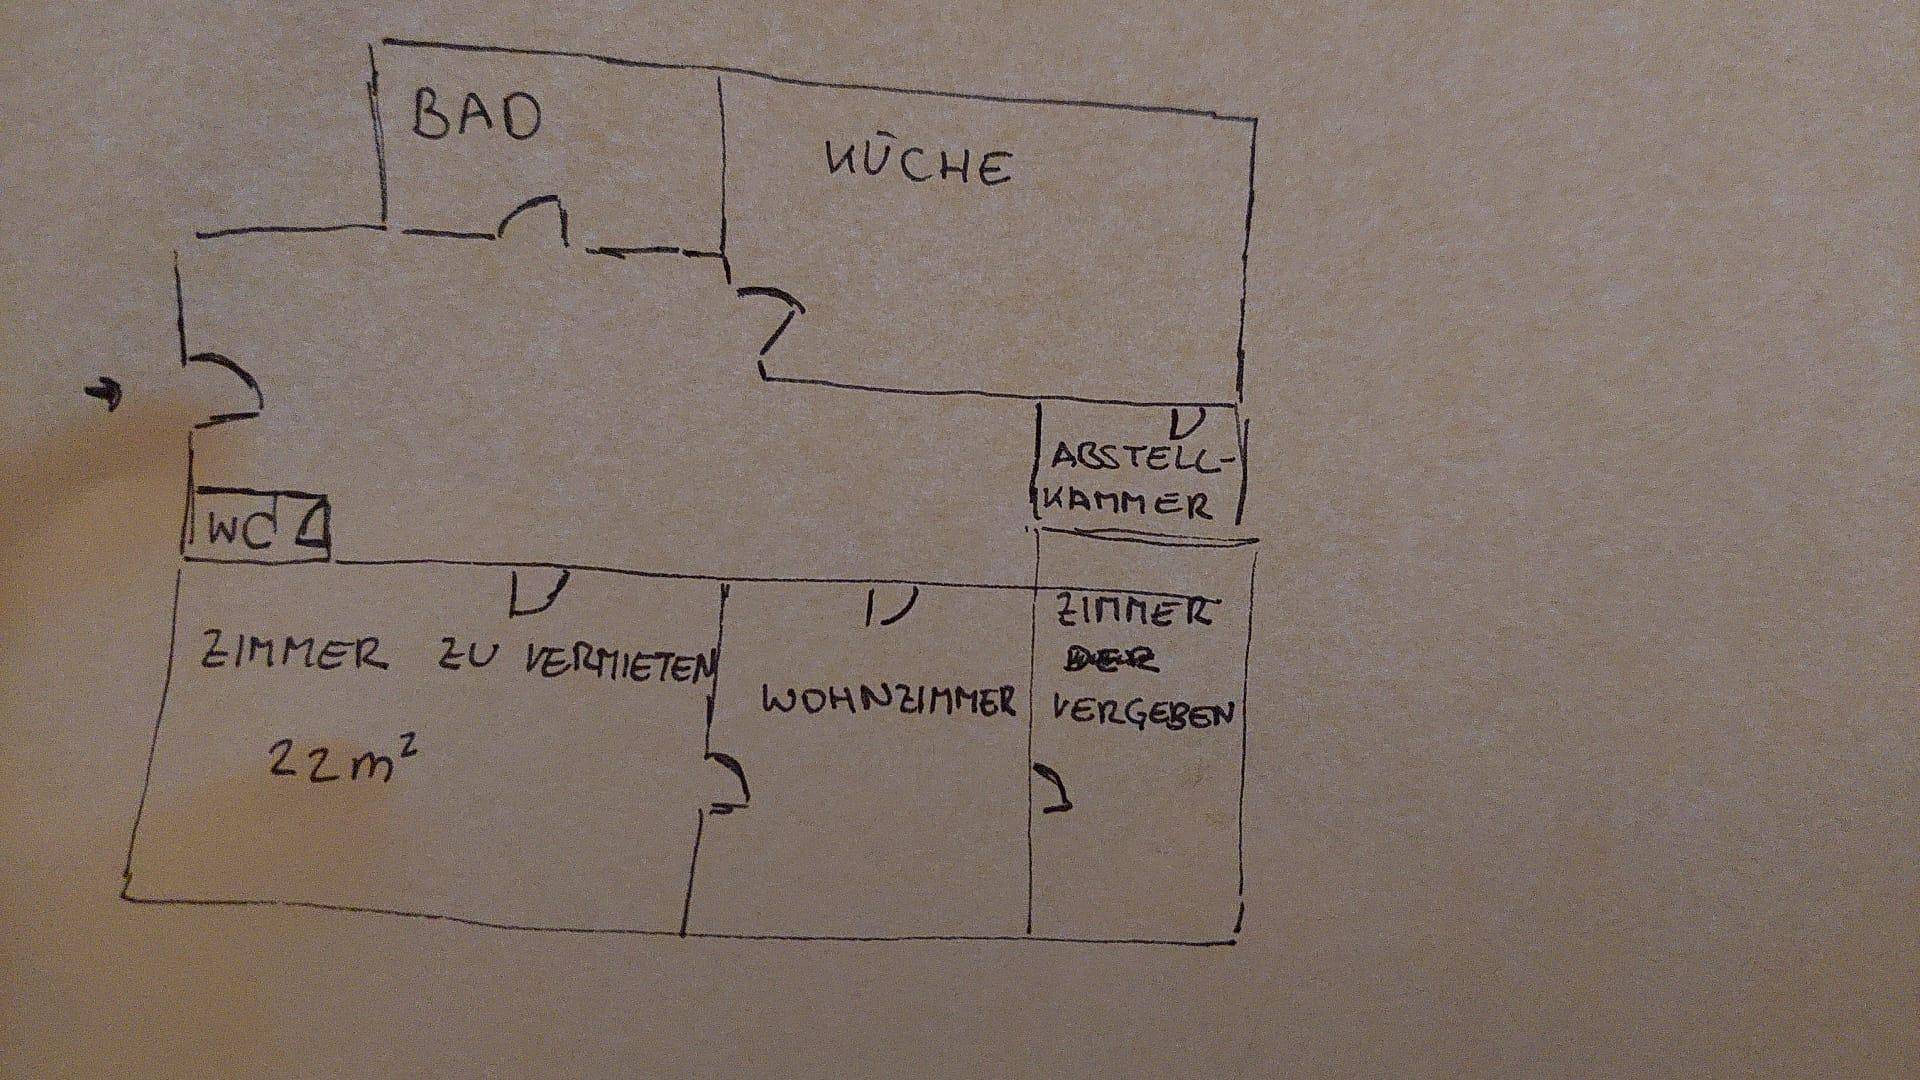 BAD
KÜCHE
ABSTELL-
KAMMER
WC
ZIMMER ZU VERMIETEN
22m²
WOHNZIMMER
ZIMMER
DER
VERGEBEN